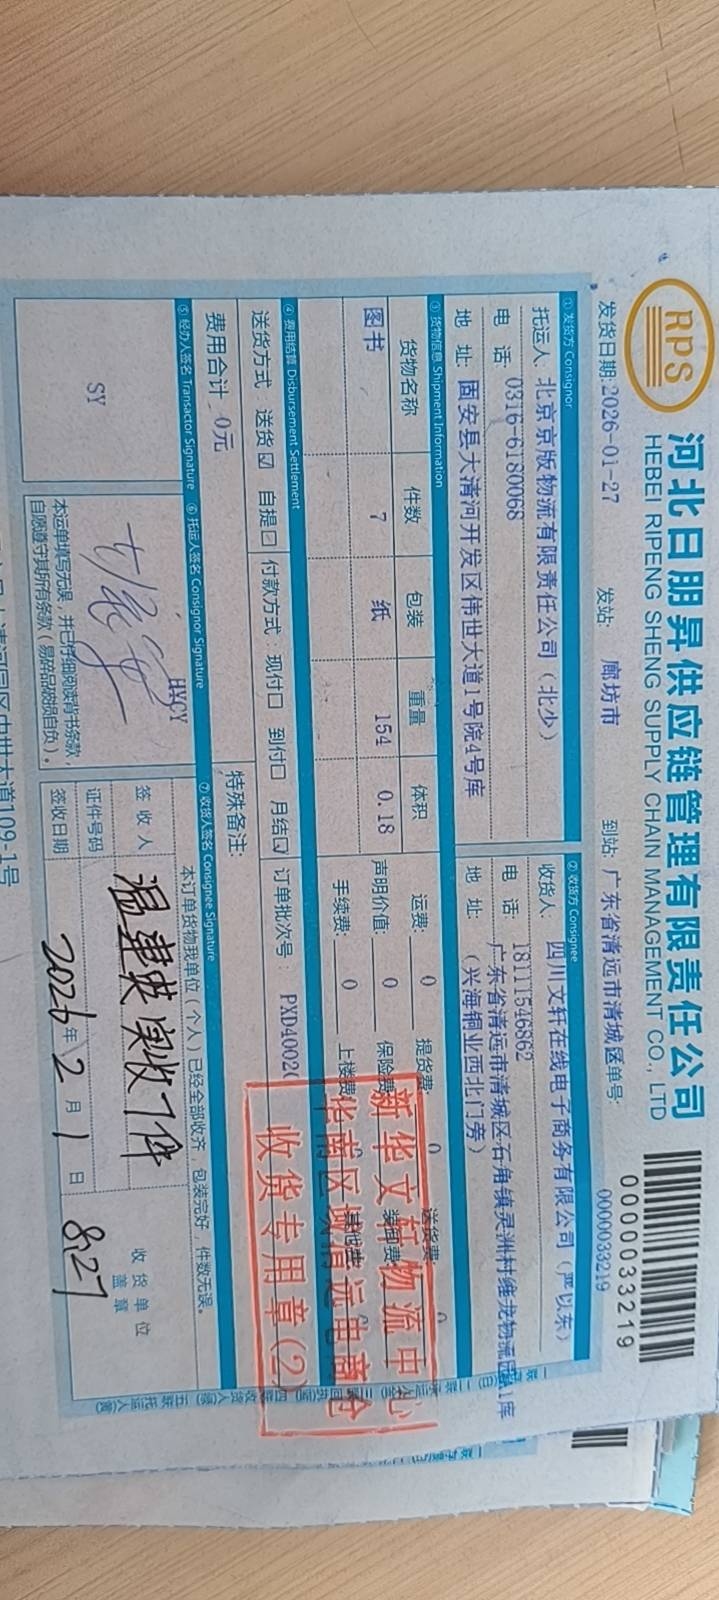 RPS
河北日朋昇供应链管理有限责任公司
HEBEI RIPENG SHENG SUPPLY CHAIN MANAGEMENT CO., LTD
0000033219
发货日期:2026-01-27 发站: 廊坊市 到站: 广东省清远市清城区 单号: 0000033219
① 发货方 Consignor
托运人 北京京版物流有限责任公司（北少）
电 话: 0316-6180068
地 址: 固安县大清河开发区伟世大道1号院4号库
② 收货方 Consignee
收货人: 四川文轩在线电子商务有限公司（严以东）
电 话: 18111546862
地 址: 广东省清远市清城区石角镇灵洲村维龙物流园A1库
（兴海铜业西北门旁）
③ 货物信息 Shipment Information
货物名称 件数 包装 重量 体积
图书 7 纸 154 0.18
运费: 0 提货费: 0 送货费: 0
声明价值: 0 保险费 装卸费
手续费: 0 上楼费 其他费
④ 费用结算 Disbursement Settlement
送货方式: 送货☑ 自提☐ 付款方式: 现付☐ 到付☐ 月结☑ 订单批次号: PXD4002
费用合计 0元
特殊备注:
新华文轩物流中心
华南区域清远电商仓
收货专用章(2)
⑤ 经办人签名 Transactor Signature
SY
⑥ 托运人签名 Consignor Signature
HXCY
本运单填写无误，并已仔细阅读背书条款，
自愿遵守其所有条款（易碎品破损自负）。
⑦ 收货人签名 Consignee Signature
本订单货物我单位（个人）已经全部收齐，包装完好，件数无误。
签 收 人 温建英 实收7件
证件号码
签收日期 2026年 2 月 1 日 8:27
收货单位
盖 章
大道109-1号